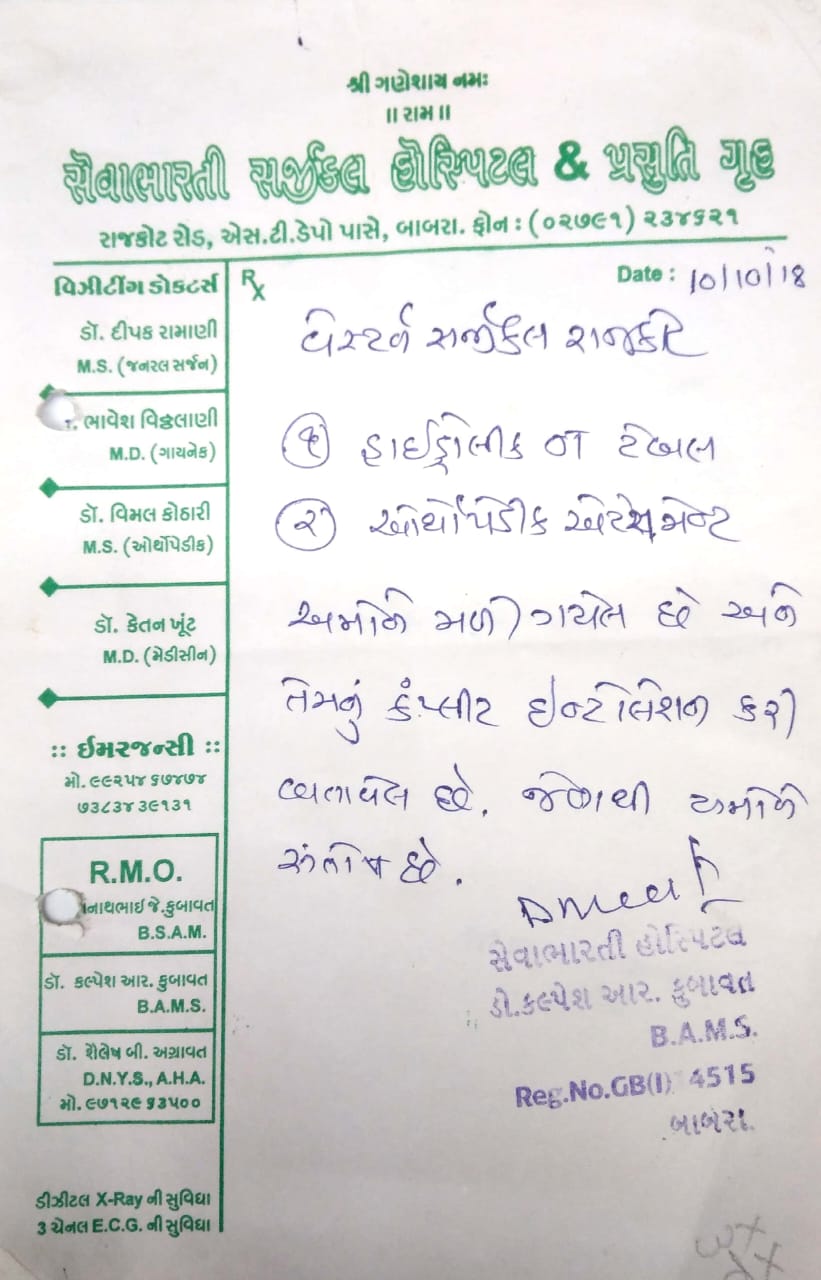 શ્રી ગણેશાય નમઃ
॥ રામ ॥
સેવાભારતી સર્જીકલ હોસ્પિટલ & પ્રસુતિ ગૃહ
રાજકોટ રોડ, એસ.ટી.ડેપો પાસે, બાબરા. ફોન : (૦૨૭૯૧) ૨૩૪૬૨૧
વિઝીટીંગ ડોકટર્સ
ડૉ. દીપક રામાણી
M.S. (જનરલ સર્જન)
ભાવેશ વિઠ્ઠલાણી
M.D. (ગાયનેક)
ડૉ. વિમલ કોઠારી
M.S. (ઓર્થોપેડીક)
ડૉ. કેતન ખૂંટ
M.D. (મેડીસીન)
:: ઈમરજન્સી ::
મો. ૯૯૨૫૪ ૬૭૪૭૪
૭૩૮૩૪ ૩૯૧૩૧
R.M.O.
નાથભાઈ જે. કુબાવત
B.S.A.M.
ડૉ. કલ્પેશ આર. કુબાવત
B.A.M.S.
ડૉ. શૈલેષ બી. અગ્રાવત
D.N.Y.S., A.H.A.
મો. ૯૭૧૨૯ ૬૩૫૦૦
ડીઝીટલ X-Ray ની સુવિધા
3 ચેનલ E.C.G. ની સુવિધા
Rx
Date : 10/10/18
વેસ્ટર્ન સર્જીકલ રાજકોટ
૧ હાઈડ્રોલીક ટેબલ
૨ ઓર્થોપેડીક એટેચમેન્ટ
અમોને મળી ગયેલ છે અને
તેમનું કંપ્લીટ ઇન્ટોલેશન કરી
બતાવેલ છે. જેનાથી અમોને
સંતોષ છે.
સેવાભારતી હોસ્પિટલ
ડો. કલ્પેશ આર. કુબાવત
B.A.M.S.
Reg.No.GB(I) 14515
બાબરા.